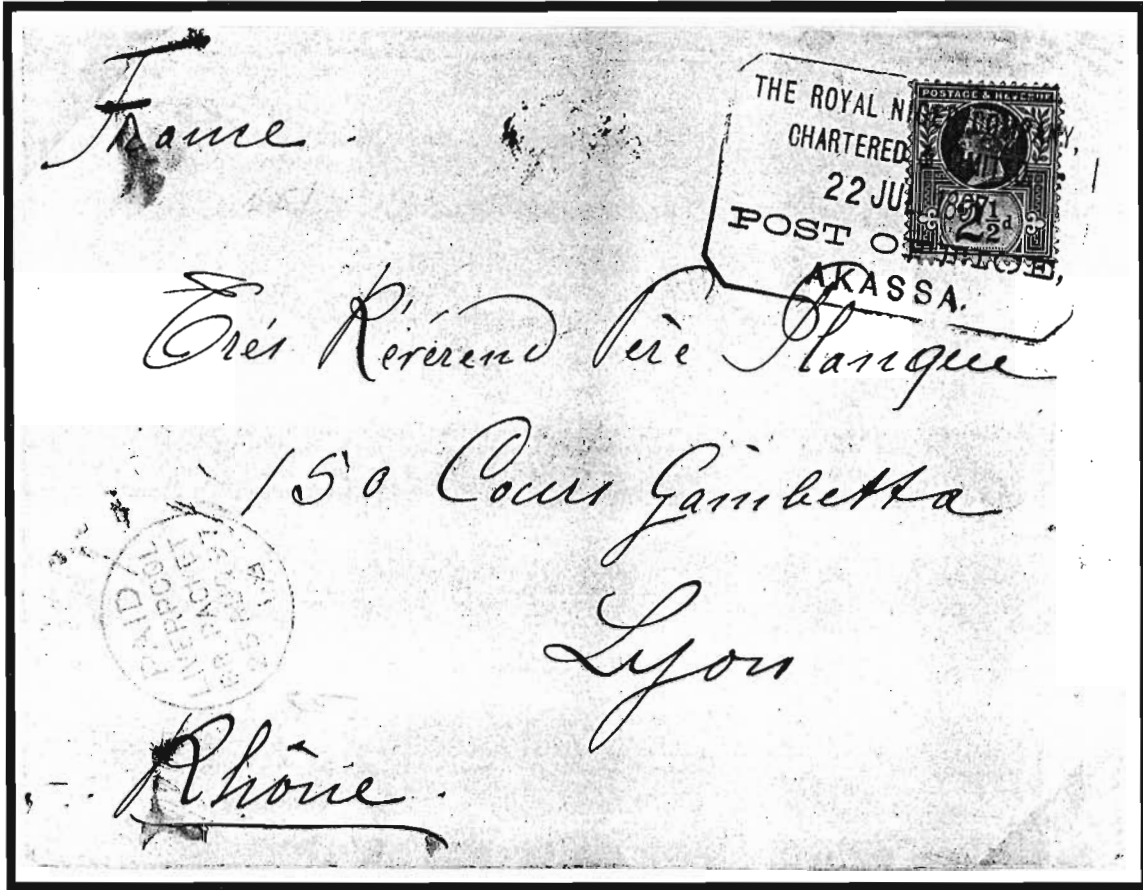 France.
THE ROYAL NIGER COMPANY,
CHARTERED &
22 JU 1897
POST OFFICE,
AKASSA.
POSTAGE & REVENUE
2½d
Très Révérend Père Planque
150 Cours Gambetta
Lyon
Rhône.
PAID
LIVERPOOL
BR PACKET